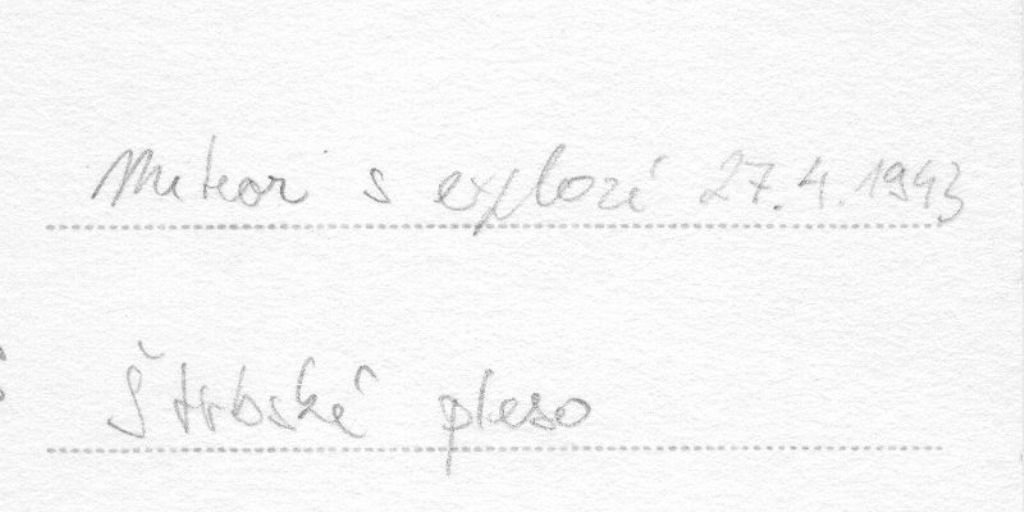 Meteor s explozí 27.4.1943
Štrbské pleso